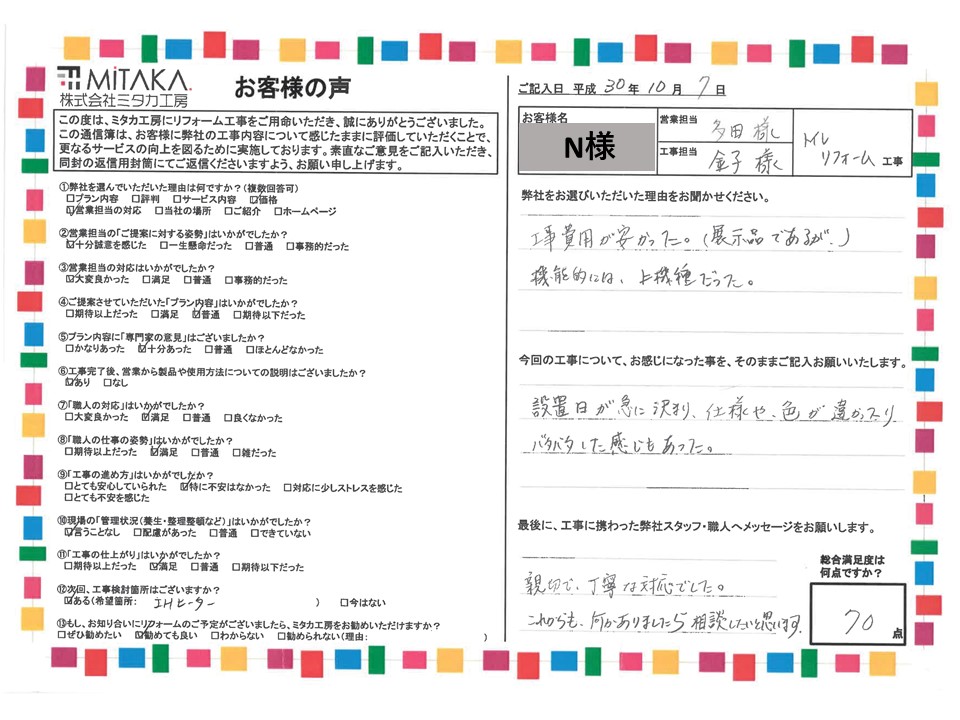 MiTAKA.
株式会社ミタカ工房
お客様の声
この度は、ミタカ工房にリフォーム工事をご用命いただき、誠にありがとうございました。
この通信簿は、お客様に弊社の工事内容について感じたままに評価していただくことで、
更なるサービスの向上を図るために実施しております。素直なご意見をご記入いただき、
同封の返信用封筒にてご返信くださいますよう、お願い申し上げます。
①弊社を選んでいただいた理由は何ですか？(複数回答可)
□プラン内容 □評判 □サービス内容 ☑価格
☑営業担当の対応 □当社の場所 □ご紹介 □ホームページ
②営業担当の「ご提案に対する姿勢」はいかがでしたか？
☑十分誠意を感じた □一生懸命だった □普通 □事務的だった
③営業担当の対応はいかがでしたか？
☑大変良かった □満足 □普通 □事務的だった
④ご提案させていただいた「プラン内容」はいかがでしたか？
□期待以上だった □満足 ☑普通 □期待以下だった
⑤プラン内容に「専門家の意見」はございましたか？
□かなりあった ☑十分あった □普通 □ほとんどなかった
⑥工事完了後、営業から製品や使用方法についての説明はございましたか？
☑あり □なし
⑦「職人の対応」はいかがでしたか？
□大変良かった ☑満足 □普通 □良くなかった
⑧「職人の仕事の姿勢」はいかがでしたか？
□期待以上だった ☑満足 □普通 □雑だった
⑨「工事の進め方」はいかがでしたか？
□とても安心していられた ☑特に不安はなかった □対応に少しストレスを感じた
□とても不安を感じた
⑩現場の「管理状況(養生・整理整頓など)」はいかがでしたか？
☑言うことなし □配慮があった □普通 □できていない
⑪「工事の仕上がり」はいかがでしたか？
□期待以上だった ☑満足 □普通 □期待以下だった
⑫次回、工事検討箇所はございますか？
☑ある(希望箇所: IHヒーター ) □今はない
⑬もし、お知り合いにリフォームのご予定がございましたら、ミタカ工房をお勧めいただけますか？
□ぜひ勧めたい ☑勧めても良い □わからない □勧められない(理由: )
ご記入日 平成 30 年 10 月 7 日
お客様名
N様
営業担当 多田 様
工事担当 金子 様
トイレ
リフォーム 工事
弊社をお選びいただいた理由をお聞かせください。
工事費用が安かった。(展示品であるが。)
機能的には、上機種だった。
今回の工事について、お感じになった事を、そのままご記入お願いいたします。
設置日が急に決まり、仕様や、色が違かったり
バタバタした感じもあった。
最後に、工事に携わった弊社スタッフ・職人へメッセージをお願いします。
親切で、丁寧な対応でした。
これからも、何かありましたら相談したいと思います。
総合満足度は
何点ですか？
70 点